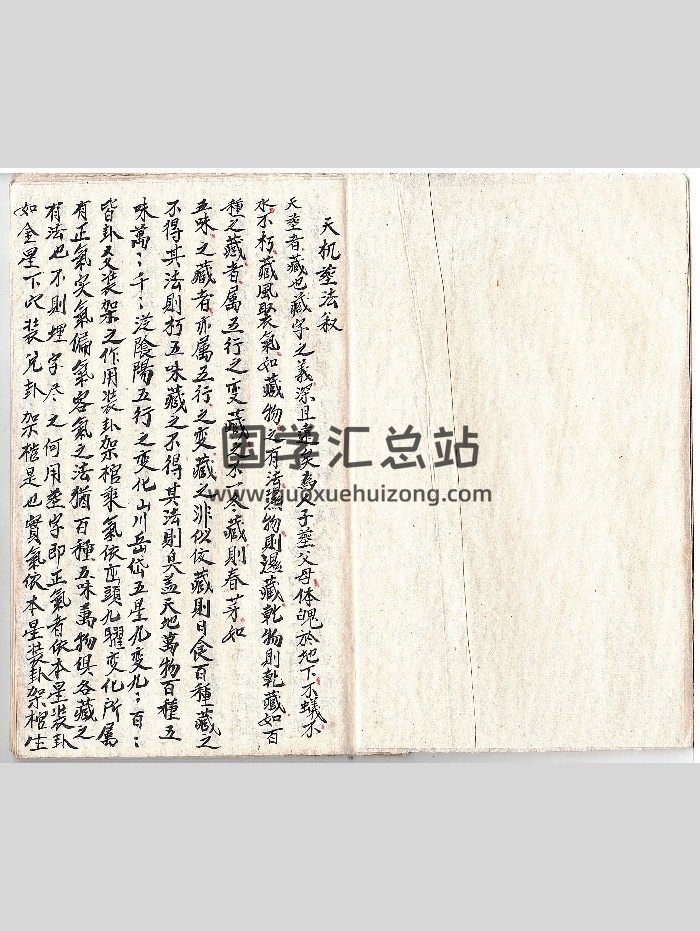 天机塟法叙
天塟者藏也藏字之義深且遠矣為人子塟父母体魄於地下不蟻不
水不朽藏風聚氣如藏物之有法濕物則濕藏乾物則乾藏如百
種之藏者屬五行之变藏之不一冬藏則春芽如
五味之藏者亦屬五行之变藏之非似伩藏則日食百種藏之
不得其法則朽五味藏之不得其法則臭盖天地萬物百種五
味萬〻千〻從陰陽五行之变化山川岳岱五星九变九〻百〻
皆卦爻装架之作用装卦架棺乘氣依峦頭九曜变化所属
有正氣实氣偏氣客氣之法猶百種五味萬物俱各藏之
有法也不則埋字尽之何用塟字即正氣者依本星装卦
如金星下穴装兑卦架棺是也實氣依本星装卦架棺生
国学汇总站
www.guoxuehuizong.com